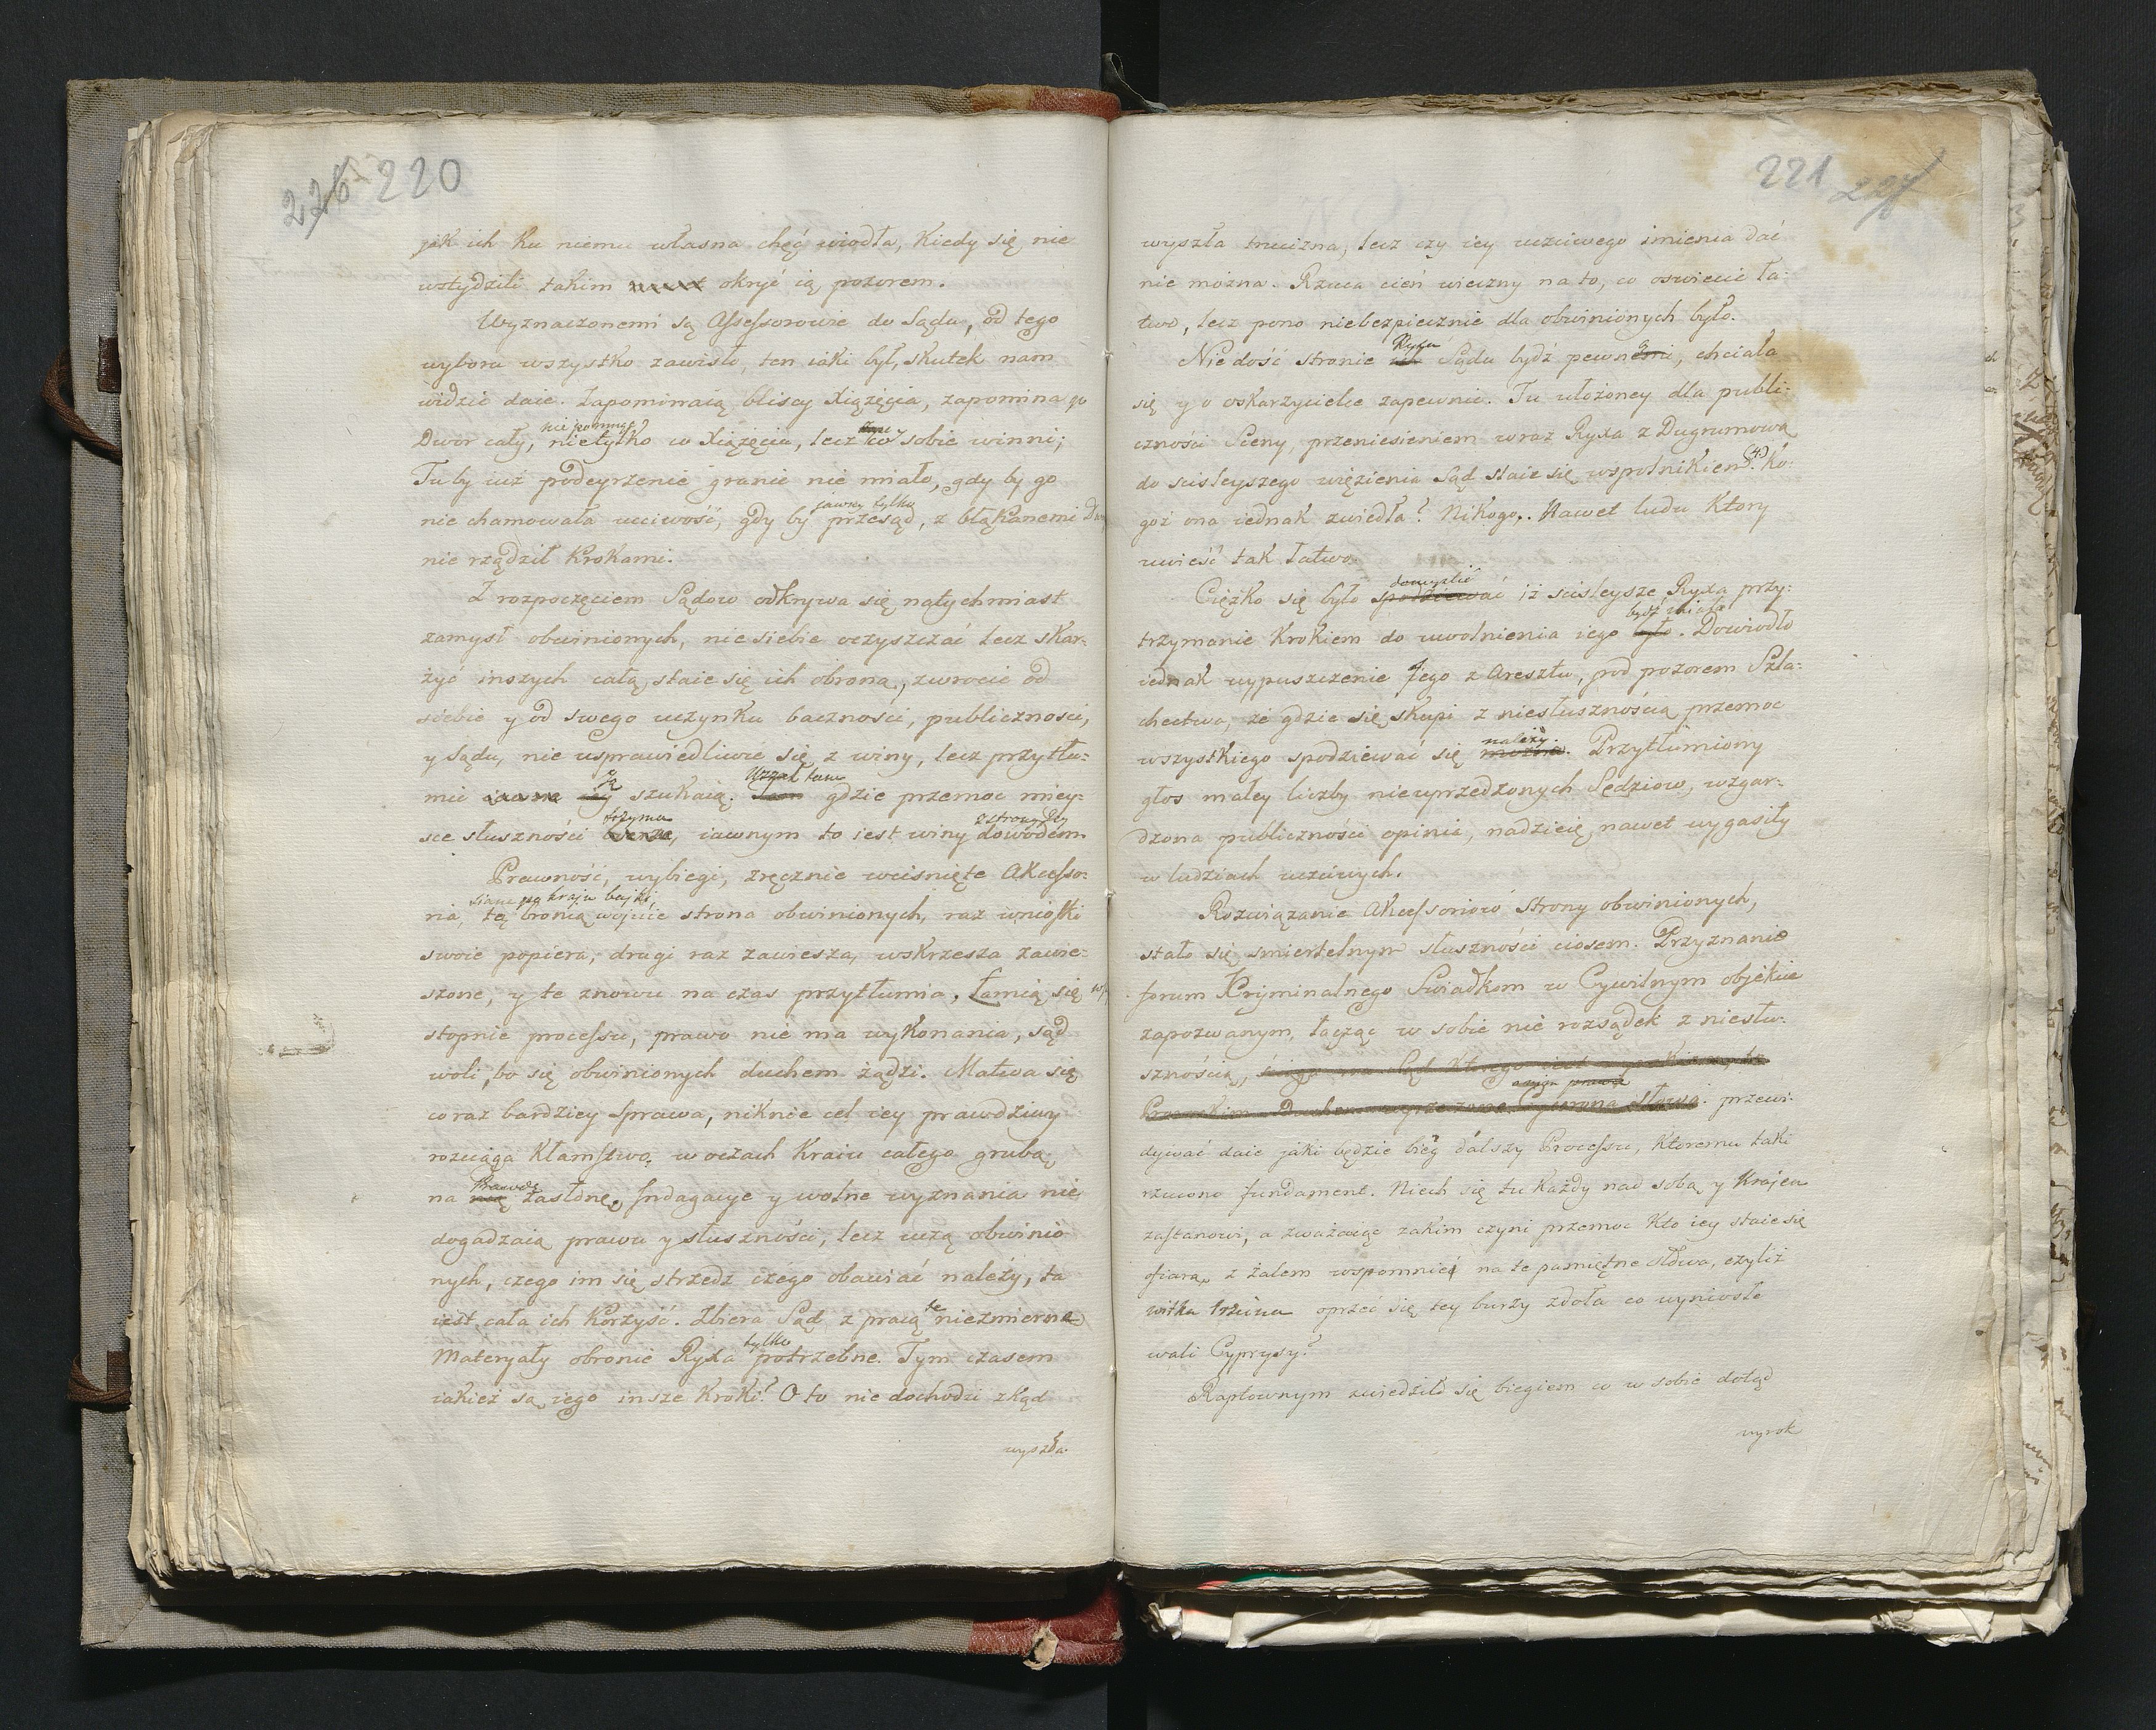 226 220
jak ich ku niemu własna chęć wiodła, kiedy się nie
wstydzili takim okryć ią pozorem.
Wyznaczonemi są Assessorowie do Sądu, od tego
wyboru wszystko zawisło, ten iaki był, skutek nam
widzić daie. Zapominaią bliscy Xiążęcia, zapomina go
nie pomnąc
Dwór cały, nietylko co Xiążęciu, lecz co sobie winni;
Tu by iuż podeyrzenie granic nie miało, gdy by go
jawny tylko
nie chamowała ucciwość, gdy by przesąd, z błąkanemi
nie rządził krokami.
Z rozpoczęciem Sądow odkrywa się natychmiast
zamysł obwinionych, nie siebie oczyszczać lecz skar-
żyć inszych całą staie się ich obroną, zwrocić od
siebie y od swego uczynku baczności, publiczności,
y Sądu, nie usprawiedliwić się z winy, lecz przytłu-
mić ią szukaią. Wszak tam gdzie przemoc miey-
trzyma z strony Jey
sce słuszności bierze, iawnym to iest winy dowodem
Prawność, wybiegi, zręcznie wciśnięte Akcesso-
siane po kraju bajki,
ria, tą bronią wojuie strona obwinionych, raz wnioski
swoie popiera, drugi raz zawiesza, wskrzesza zawie-
szone, y te znowu na czas przytłumia. Łamią się
stopnie processu, prawo nie ma wykonania, sąd
woli, bo się obwinionych duchem żądzi. Matwa się
co raz bardziey sprawa, niknie cel iey prawdziwy
rozciąga kłamstwo w oczach Kraiu całego grubą
Prawdę
na nię zasłonę. Indagacye y wolne wyznania nie
dogadzaią prawu y słuszności, lecz uczą obwinio
nych, czego im się strzedz czego obawiać należy, ta
te
iest cała ich korzyść. Zbiera Sąd z pracą niezmierną
tylko
Materyały obronie Ryxa potrzebne. Tym czasem
iakież są iego insze kroki? Oto nie dochodzi zkąd
wyszła
221 227
wyszła trucizna, lecz czy iey uczciwego imienia dać
nie można. Rzuca cień wieczny na to, co oswiecić ła-
two, lecz pono niebezpiecznie dla obwinionych było.
Ryxa
Nie dość stronie Sądu bydź pewnemi, chciała
się y o oskarzyciele zapewnić. Tu ułożoney dla publi-
czności Sceny, przeniesieniem wraz Ryxa z Dugrumową
do scisleyszego więzienia Sąd staie się wspolnikiem (4). Ko-
goż ona iednak zwiedła? Nikogo.. Nawet ludu ktory
uwieść tak łatwo.
domyslić
Ciężko się było spodziewać iż scisleysze Ryxa przy-
bydź miało
trzymanie krokiem do uwolnienia iego było. Dowiodło
iednak wypuszczenie Jego z Aresztu, pod pozorem Szla-
chectwa, że gdzie się skupi z niesłusznością przemoc
należy.
wszystkiego spodziewać się można. Przytłumiony
głos małey liczby nieuprzedzonych Sędziow, wzgar-
dzona publiczności opinia, nadzieię nawet wygasiły
w ludziach uczciwych.
Rozwiązanie Akcessoriów Strony obwinionych,
stało się smiertelnym słuszności ciosem. Przyznanie
forum Kryminalnego Swiadkom w Cywilnym objekcie
zapozwanym, łącząc w sobie nie rozsądek z niesłu-
sznością, Sąd ktorego iest
Cycerona słowa. przewi-
dywać daie jaki będzie bieg dalszy Processu, ktoremu taki
rzucono fundament. Niech się tu każdy nad sobą y Krajem
zastanowi, a zważaiąc zakim czyni przemoc kto iey staie się
ofiarą, z żalem wspomnieć na te pamiętne słowa, czyliż
witka trzcina oprzeć się tey burzy zdoła co wyniosłe
wali Cyprysy?
Raptownym zwiedził się biegiem co w sobie dotąd
wyrok